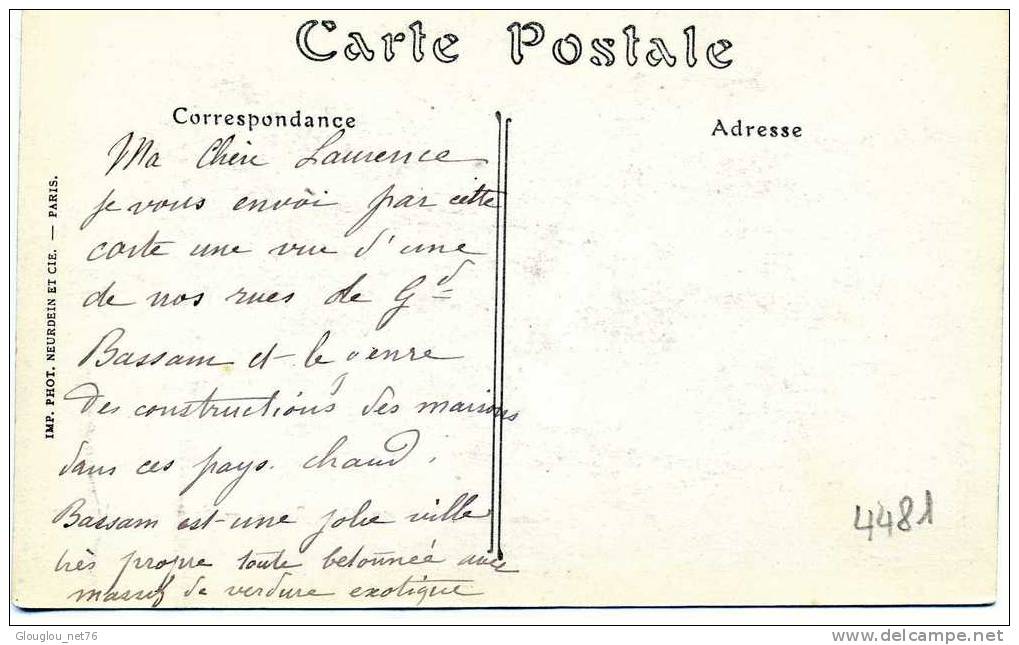 Carte Postale
Correspondance
Adresse
Ma Chère Laurence
je vous envoi par cette
carte une vue d'une
de nos rues de Gd
Bassam et le genre
des constructions des maisons
dans ces pays. chaud.
Bassam est une jolie ville
très propre toute betonnée avec
massif de verdure exotique
IMP. PHOT. NEURDEIN ET CIE. — PARIS.
4481
Glouglou_net76
http://www.delcampe.net